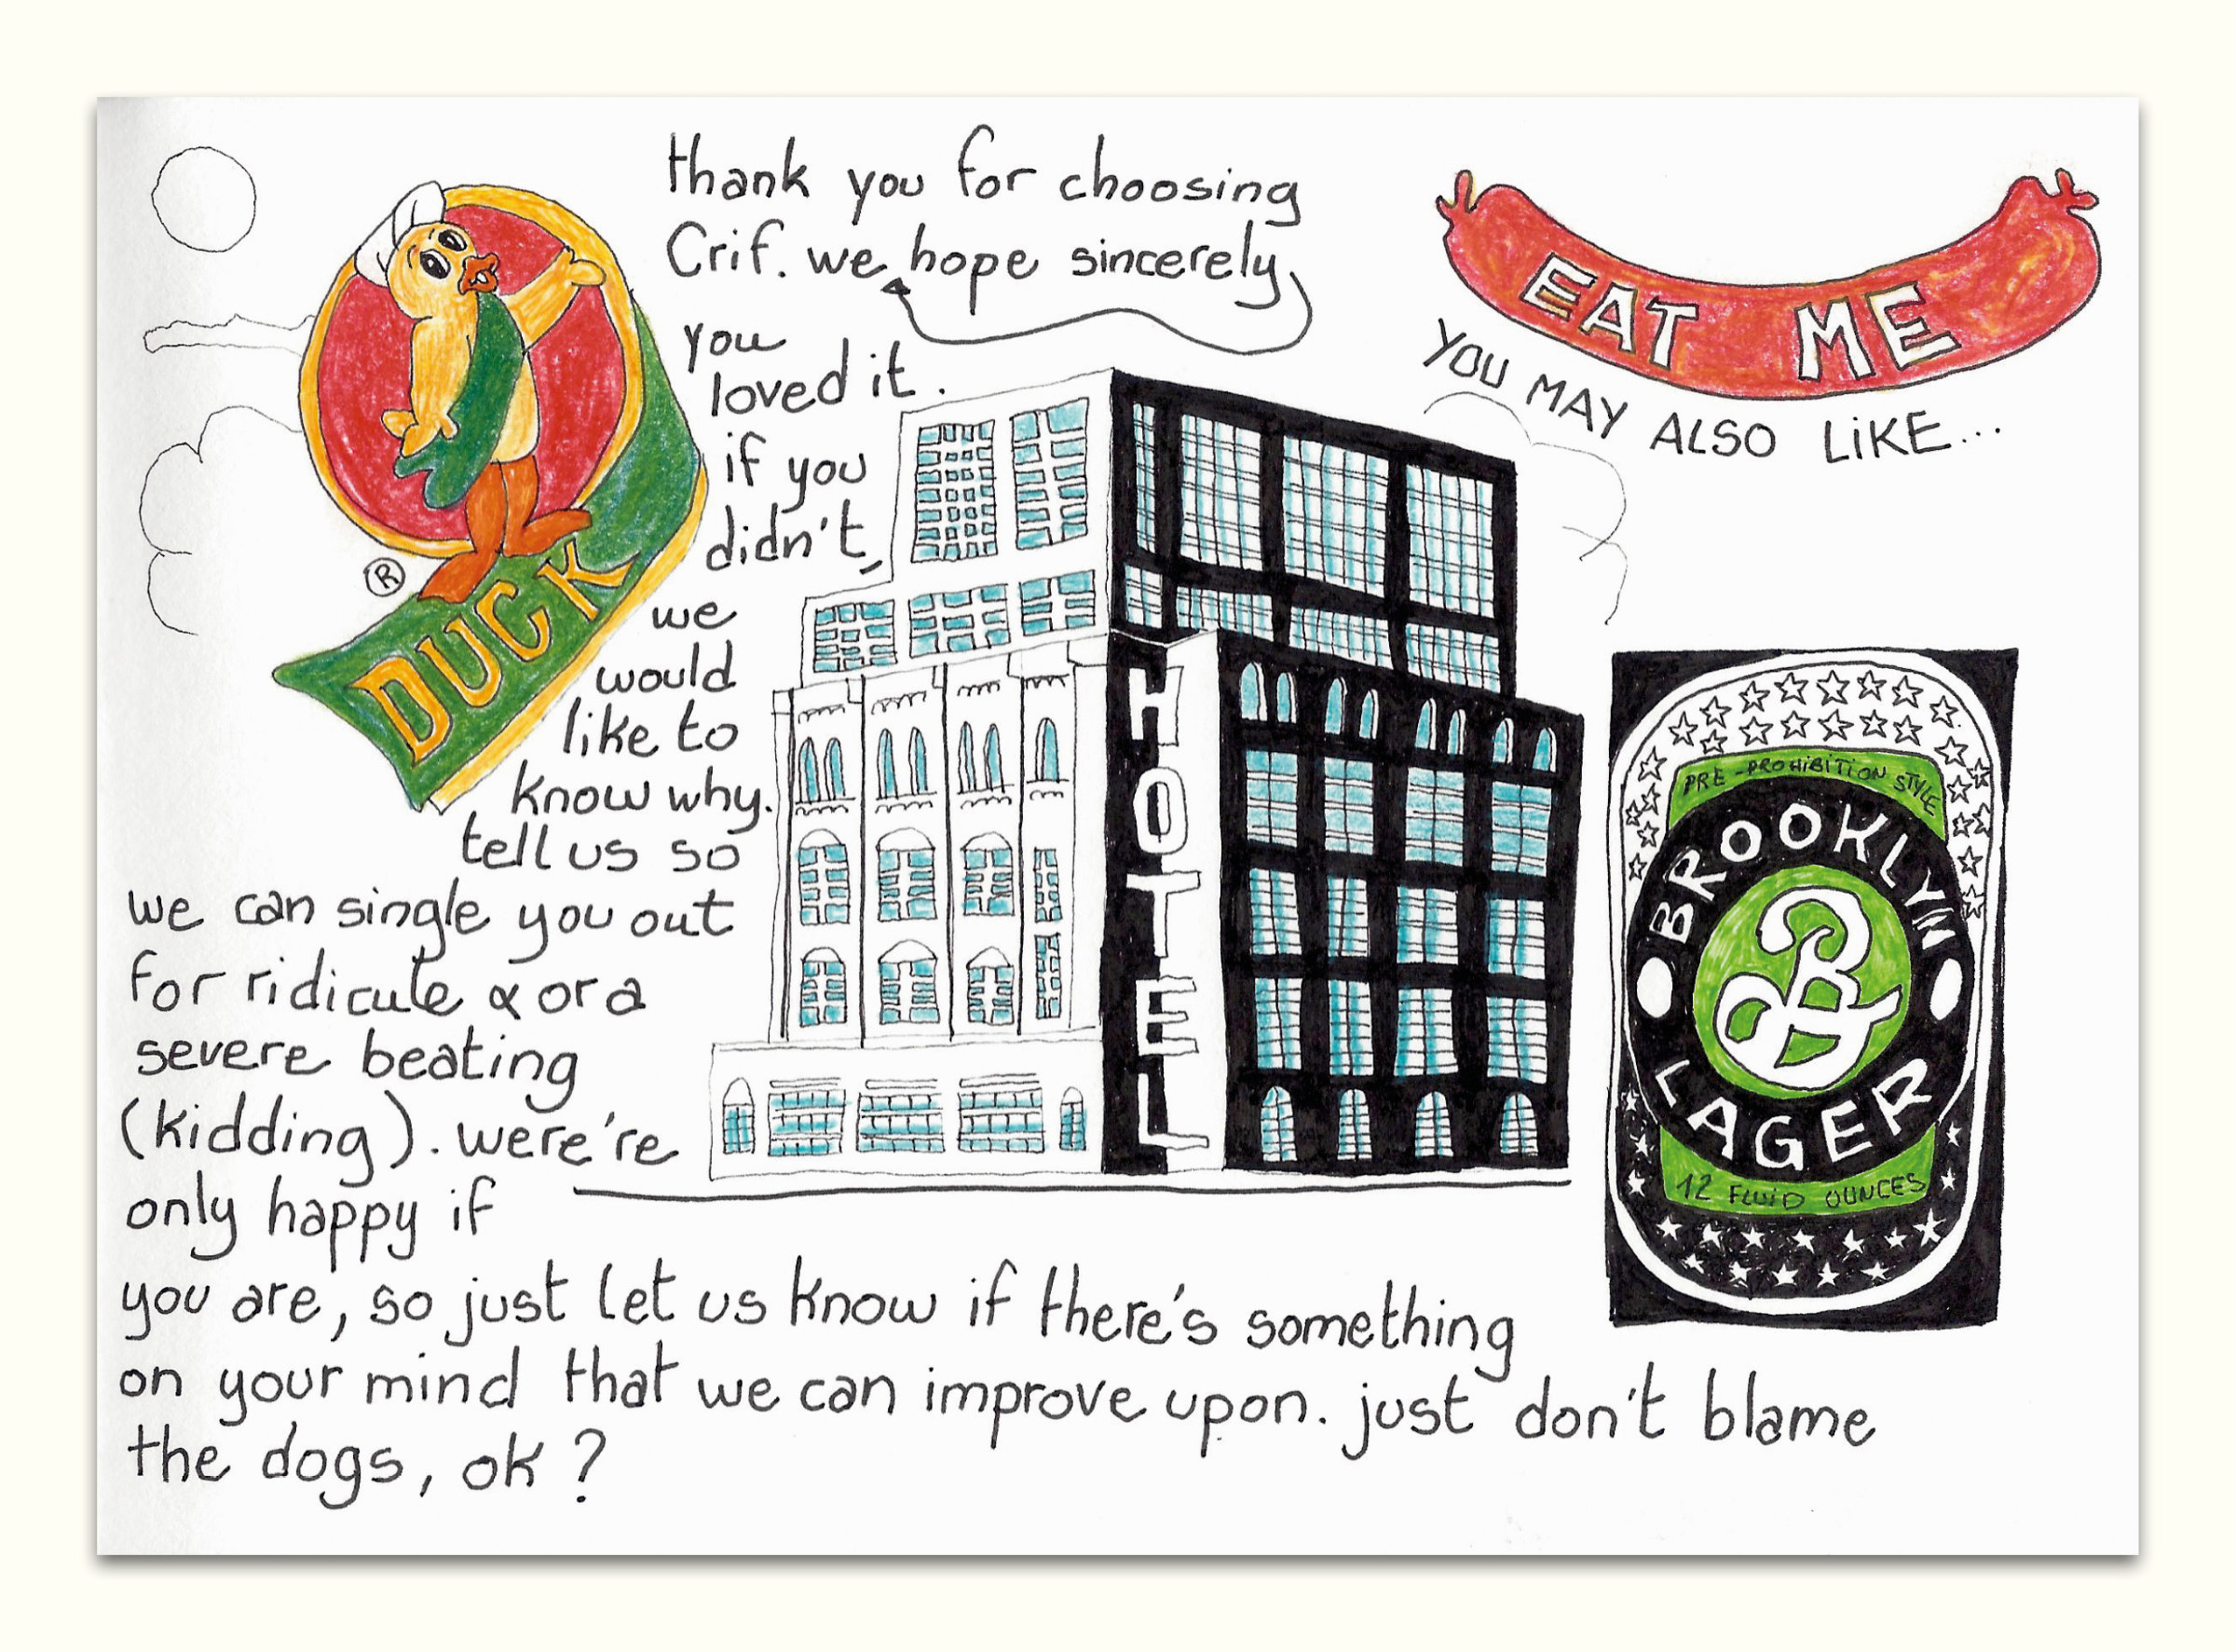 thank you for choosing
Crif. we hope sincerely
you
loved it.
if you
didn't,
we
would
like to
know why.
tell us so
we can single you out
for ridicule & or a
severe beating
(kidding). were're
only happy if
you are, so just let us know if there's something
on your mind that we can improve upon. just don't blame
the dogs, ok?
®
DUCK
EAT ME
YOU MAY ALSO LiKE...
HOTEL
PRE-PROHiBiTiON STYLE
BROOKLYN
B
LAGER
12 FLUiD OUNCES